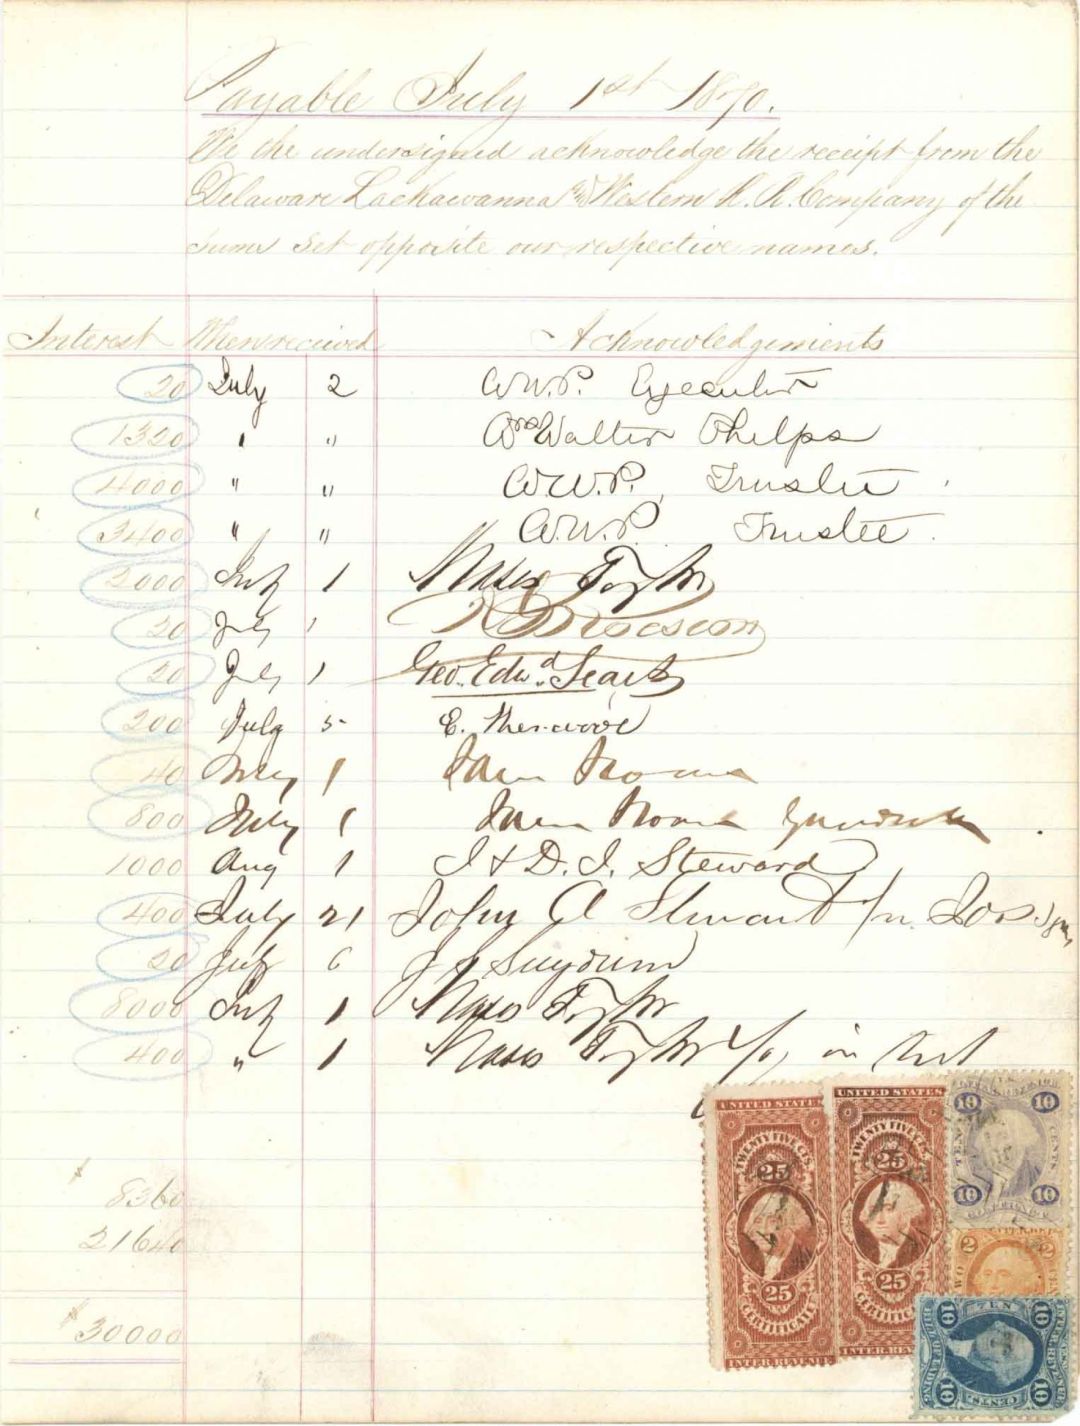 Payable July 1st 1870.
We the undersigned acknowledge the receipt from the
Delaware Lackawanna and Western R. R. Company of the
sums set opposite our respective names.
Interest When received Acknowledgements
20 July 2 W.W.P. Executor
1320 " " Wm Walter Phelps
4000 " " W.W.P. Trustee
3400 " " W.W.P. Trustee
2000 July 1 Moses Taylor
20 July 1
20 July 1 Geo. Edwd
200 July 5 E.
40 July 1
800 July 1
1000 Aug 1 J & D. J. Steward
400 July 21 John A Stewart
20 July 6 Suydam
8000 July 1 Moses Taylor
400 " 1 Moses Taylor in trust
$ 8360
21640
$ 30000
UNITED STATES
TWENTY FIVE CTS.
25
25
CERTIFICATE
INTER. REVENUE
UNITED STATES
TWENTY FIVE CTS.
25
25
CERTIFICATE
INTER. REVENUE
10 10
TEN CENTS
10 10
2 2
TWO
TEN
10 10
BILL OF LADING
INTER. REV.
10 CENTS 10